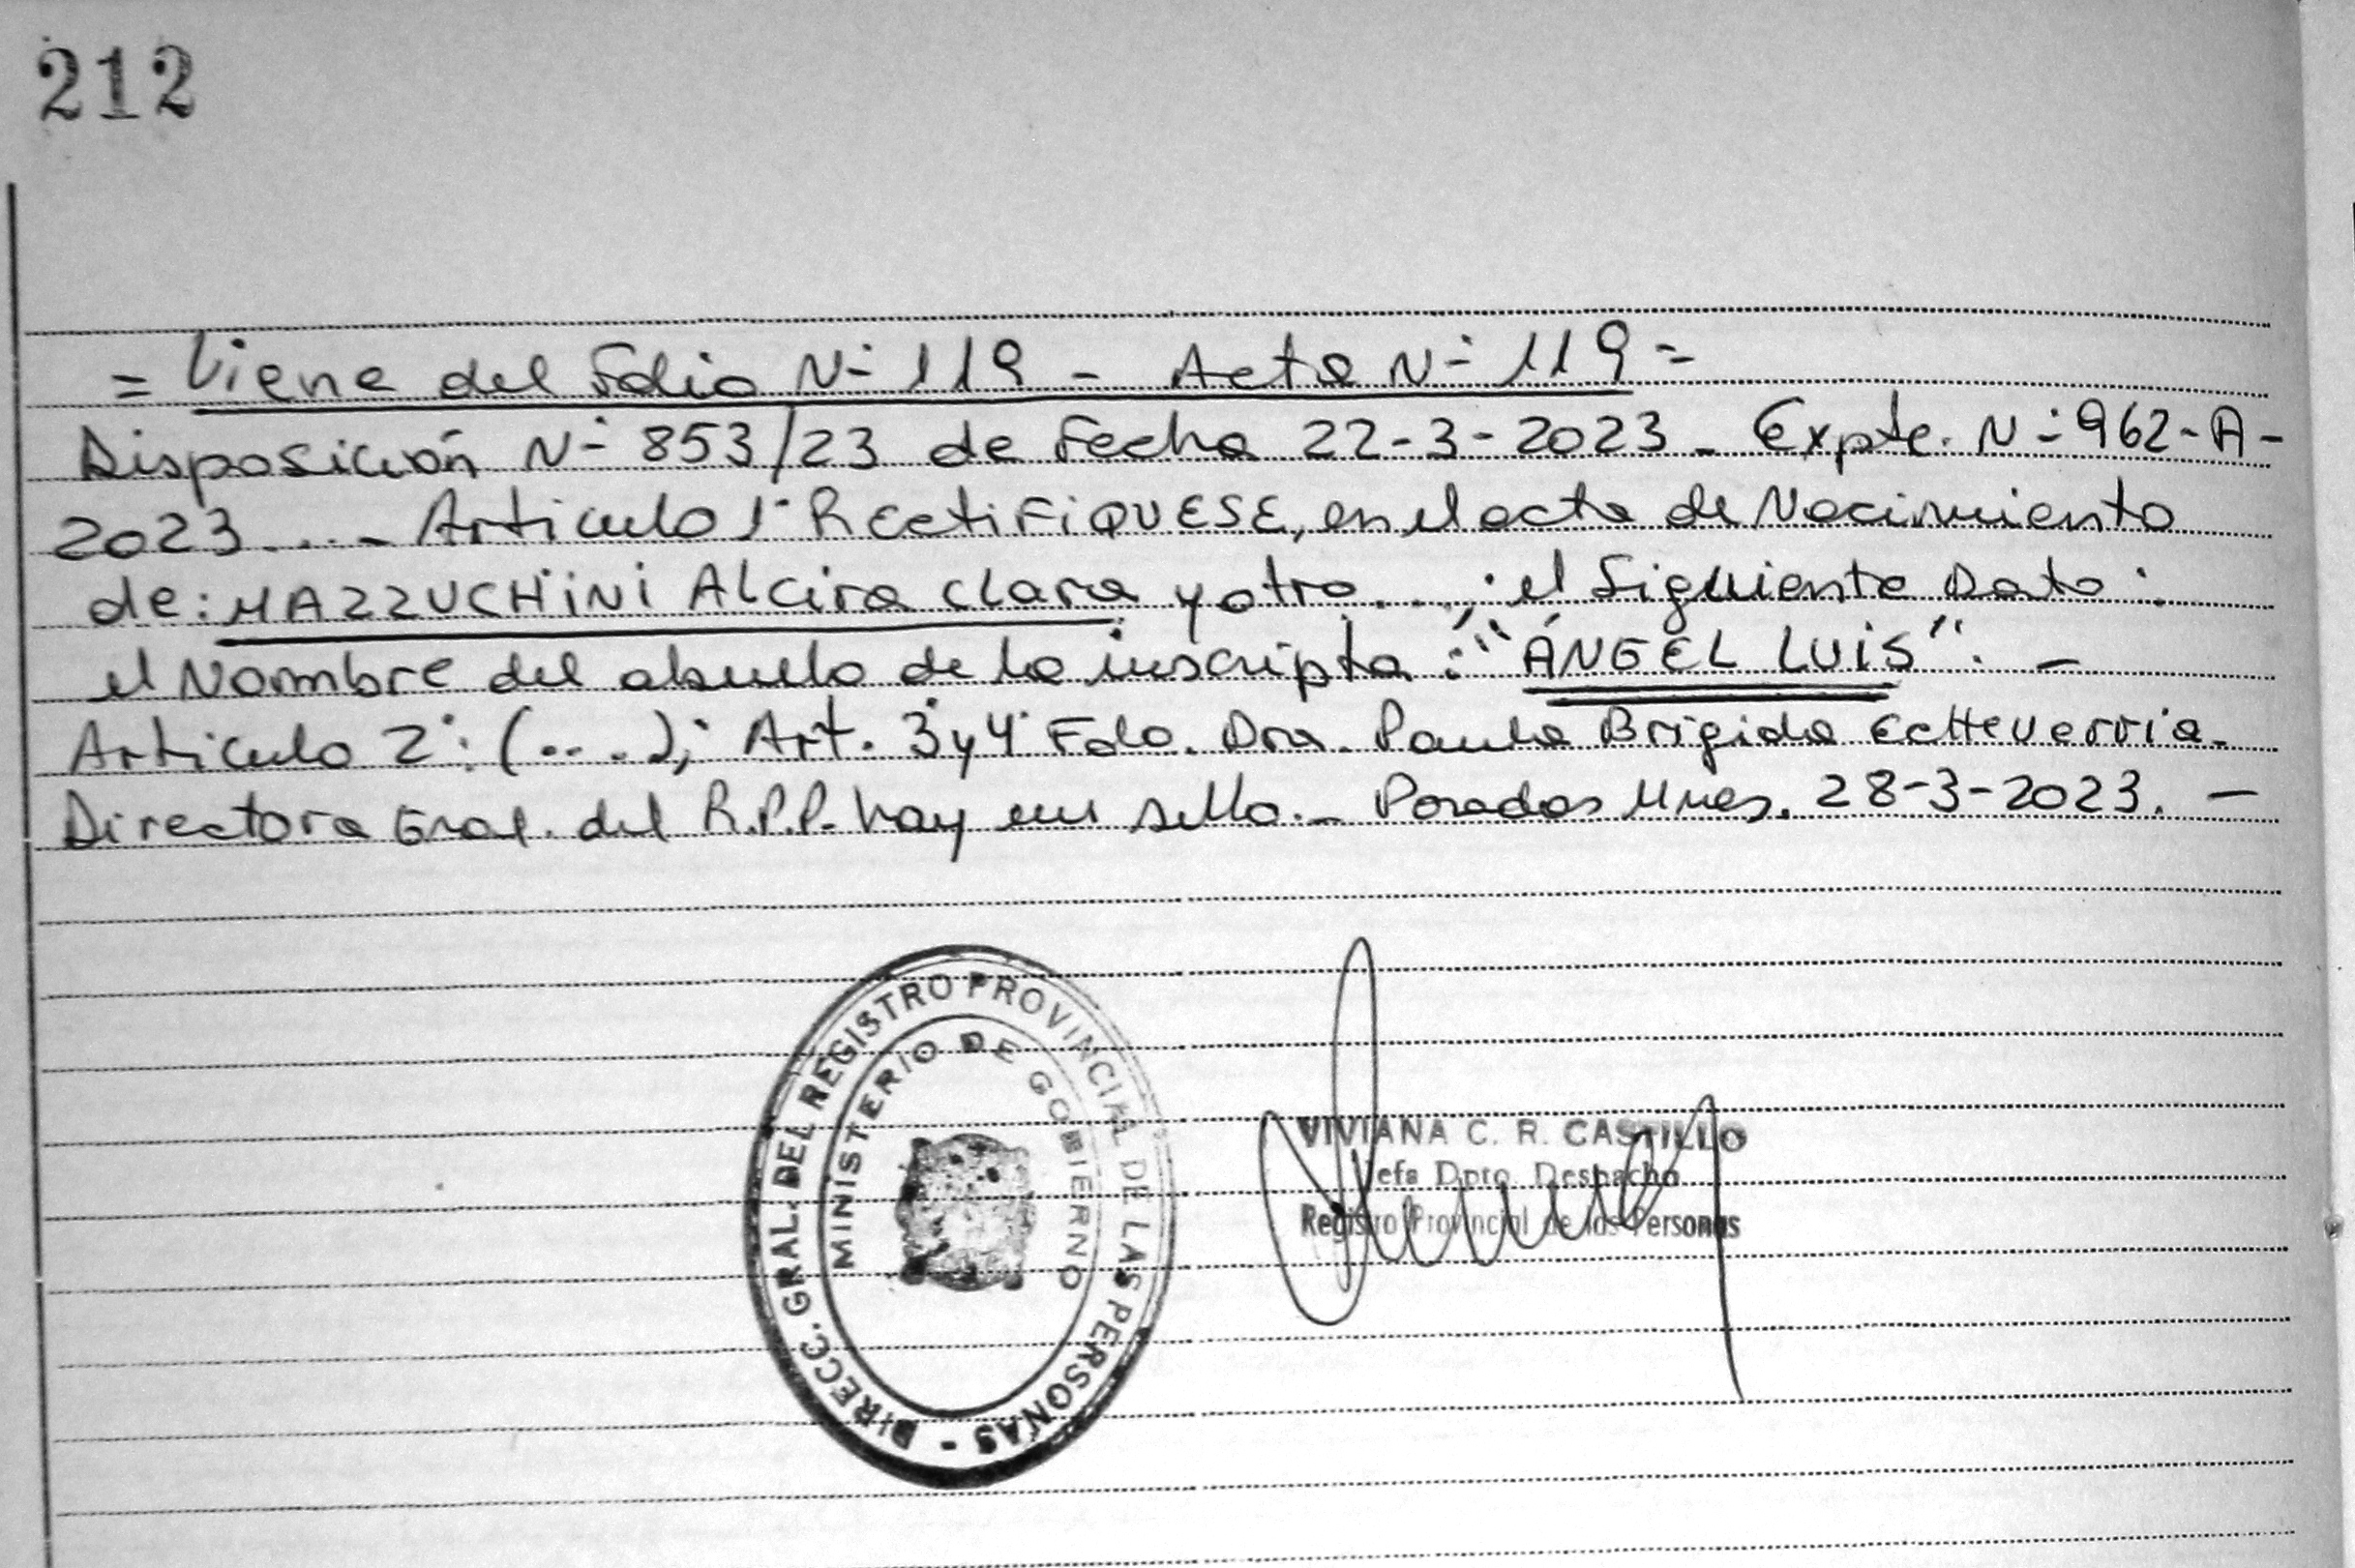 212
= Viene del Folio N- 119 - Acta N- 119 =
Disposición N- 853/23 de Fecha 22-3-2023 - Expte. N- 962-A-
2023 ... - Articulo 1° RectiFiQUESE, en el acta de Nacimiento
de: MAZZUCHINI Alcira Clara y otro ..., : el Siguiente Dato :
el Nombre del abuelo de la inscripta : "ÁNGEL LUIS". -
Articulo 2° : (....); Art. 3 y 4° Fdo. Dra. Paula Brigida Echeverria.
Directora Gral. del R.P.P. hay un sello. - Posadas Mnes. 28-3-2023. -
DIRECC. GRAL. DEL REGISTRO PROVINCIAL DE LAS PERSONAS -
MINISTERIO DE GOBIERNO
VIVIANA C. R. CASTILLO
Jefa Dpto. Despacho
Registro Provincial de las Personas